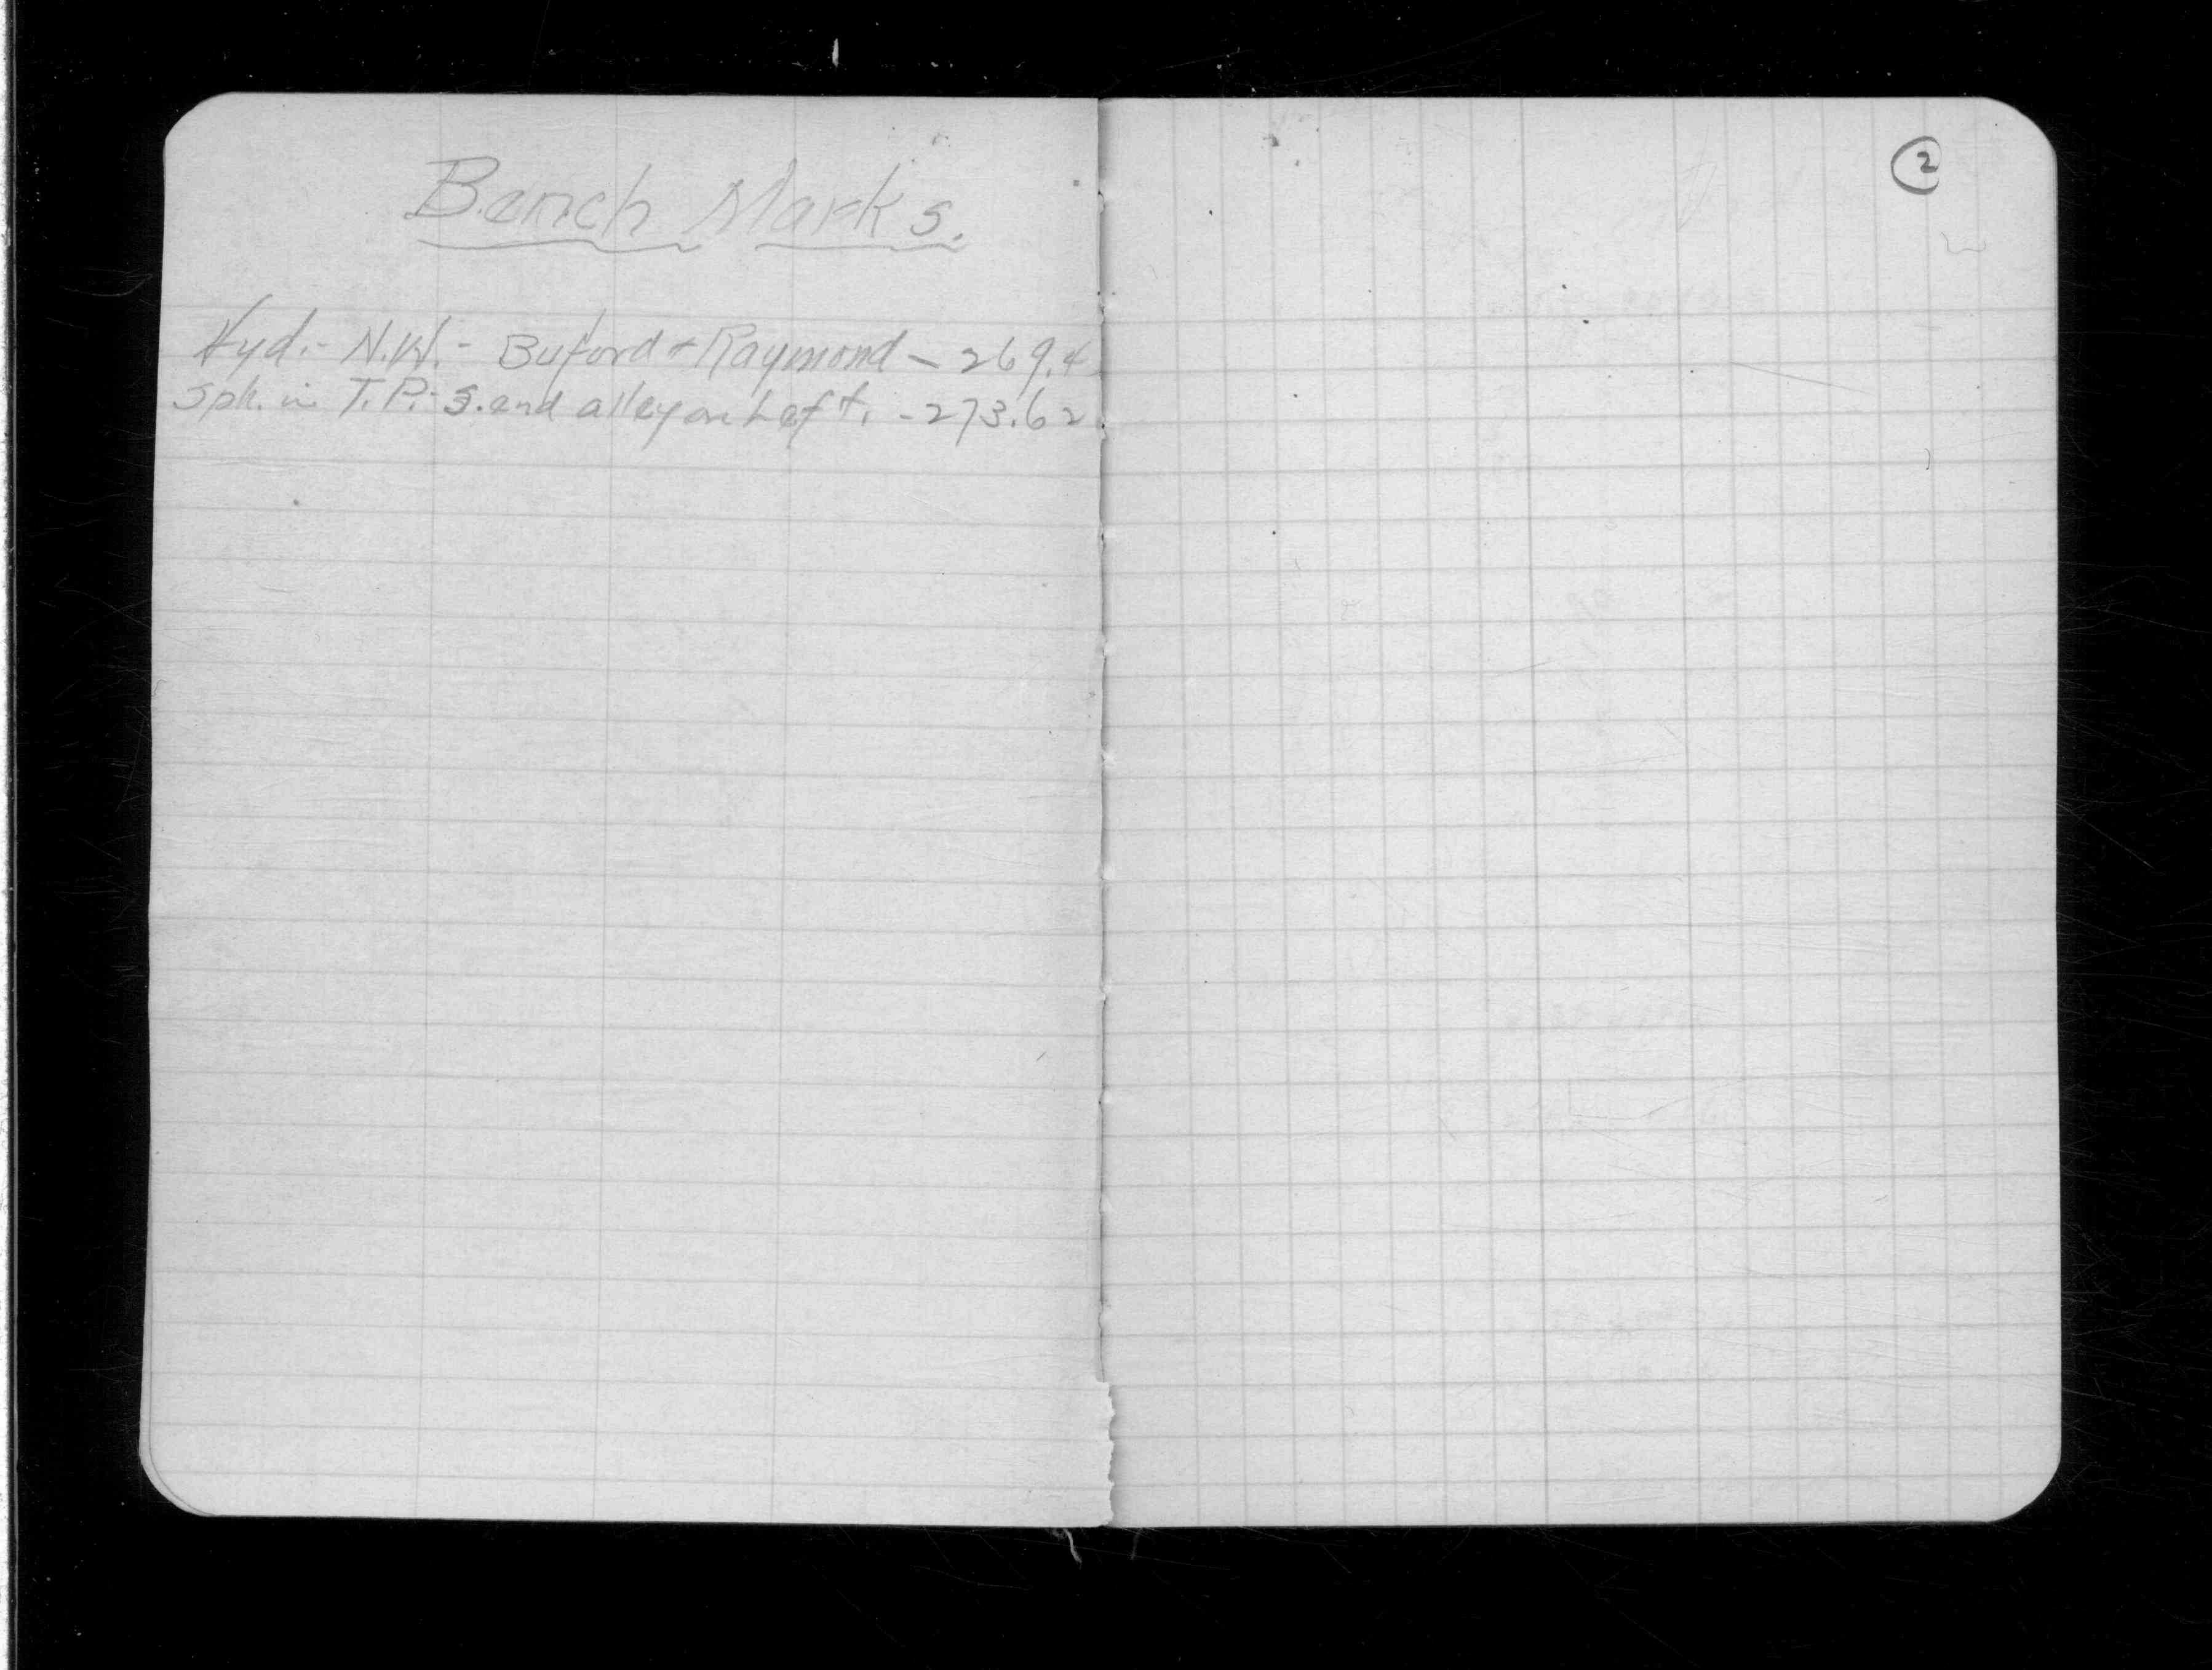 Bench Marks.
Hyd. - N.W. - Buford + Raymond - 269.4
Spk. in T.P. - S. end alley on Left. - 273.62
2